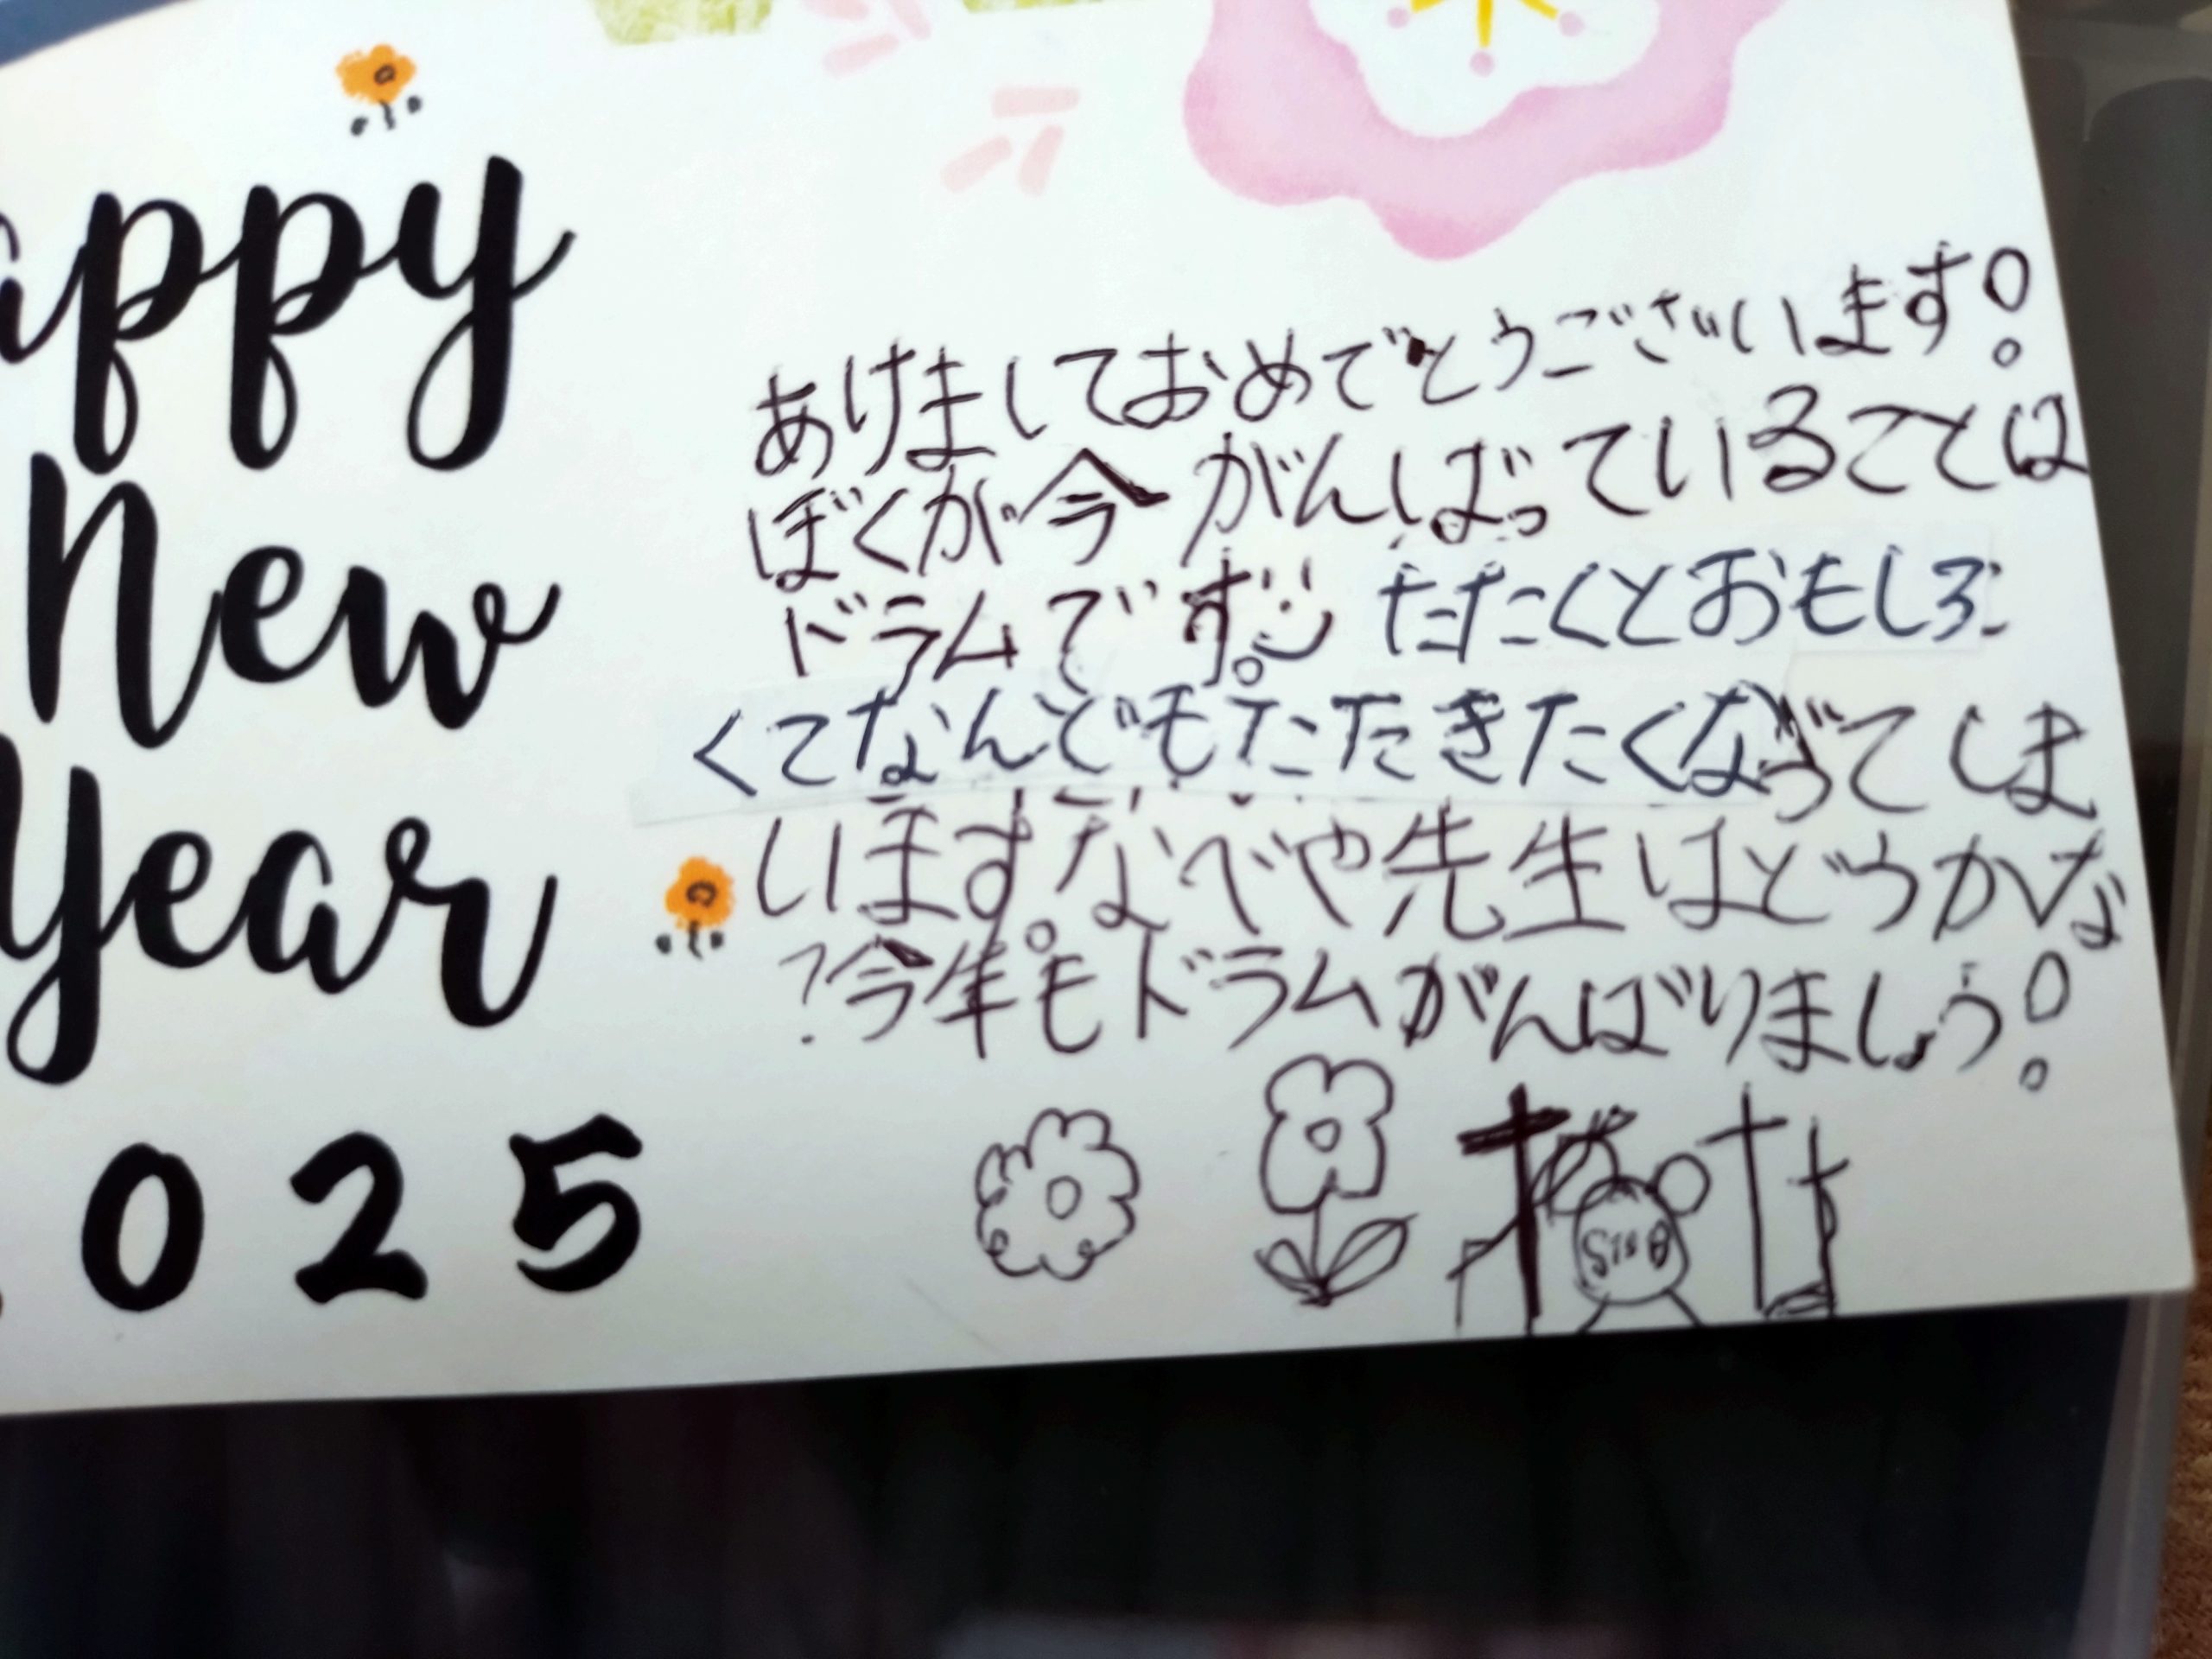 appy
New
Year
025
あけましておめでとうございます!
ぼくが今がんばっていることは
ドラムです。たたくとおもしろ
くてなんどもたたきたくなってしま
います。なべや先生はどうかな
?今年もドラムがんばりましょう!